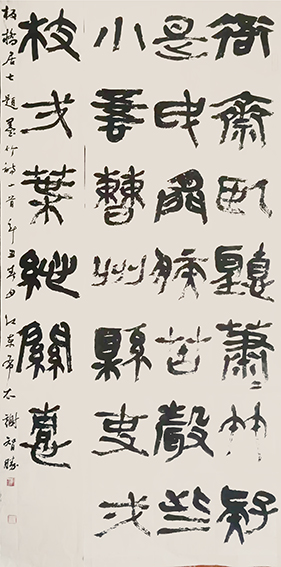 衙齋臥聽蕭〻竹疑
是民間疾苦聲些
小吾曹州縣吏弌
枝弌葉總關情
板橋居士題墨竹詩一首辛丑春日江東布衣謝智勝